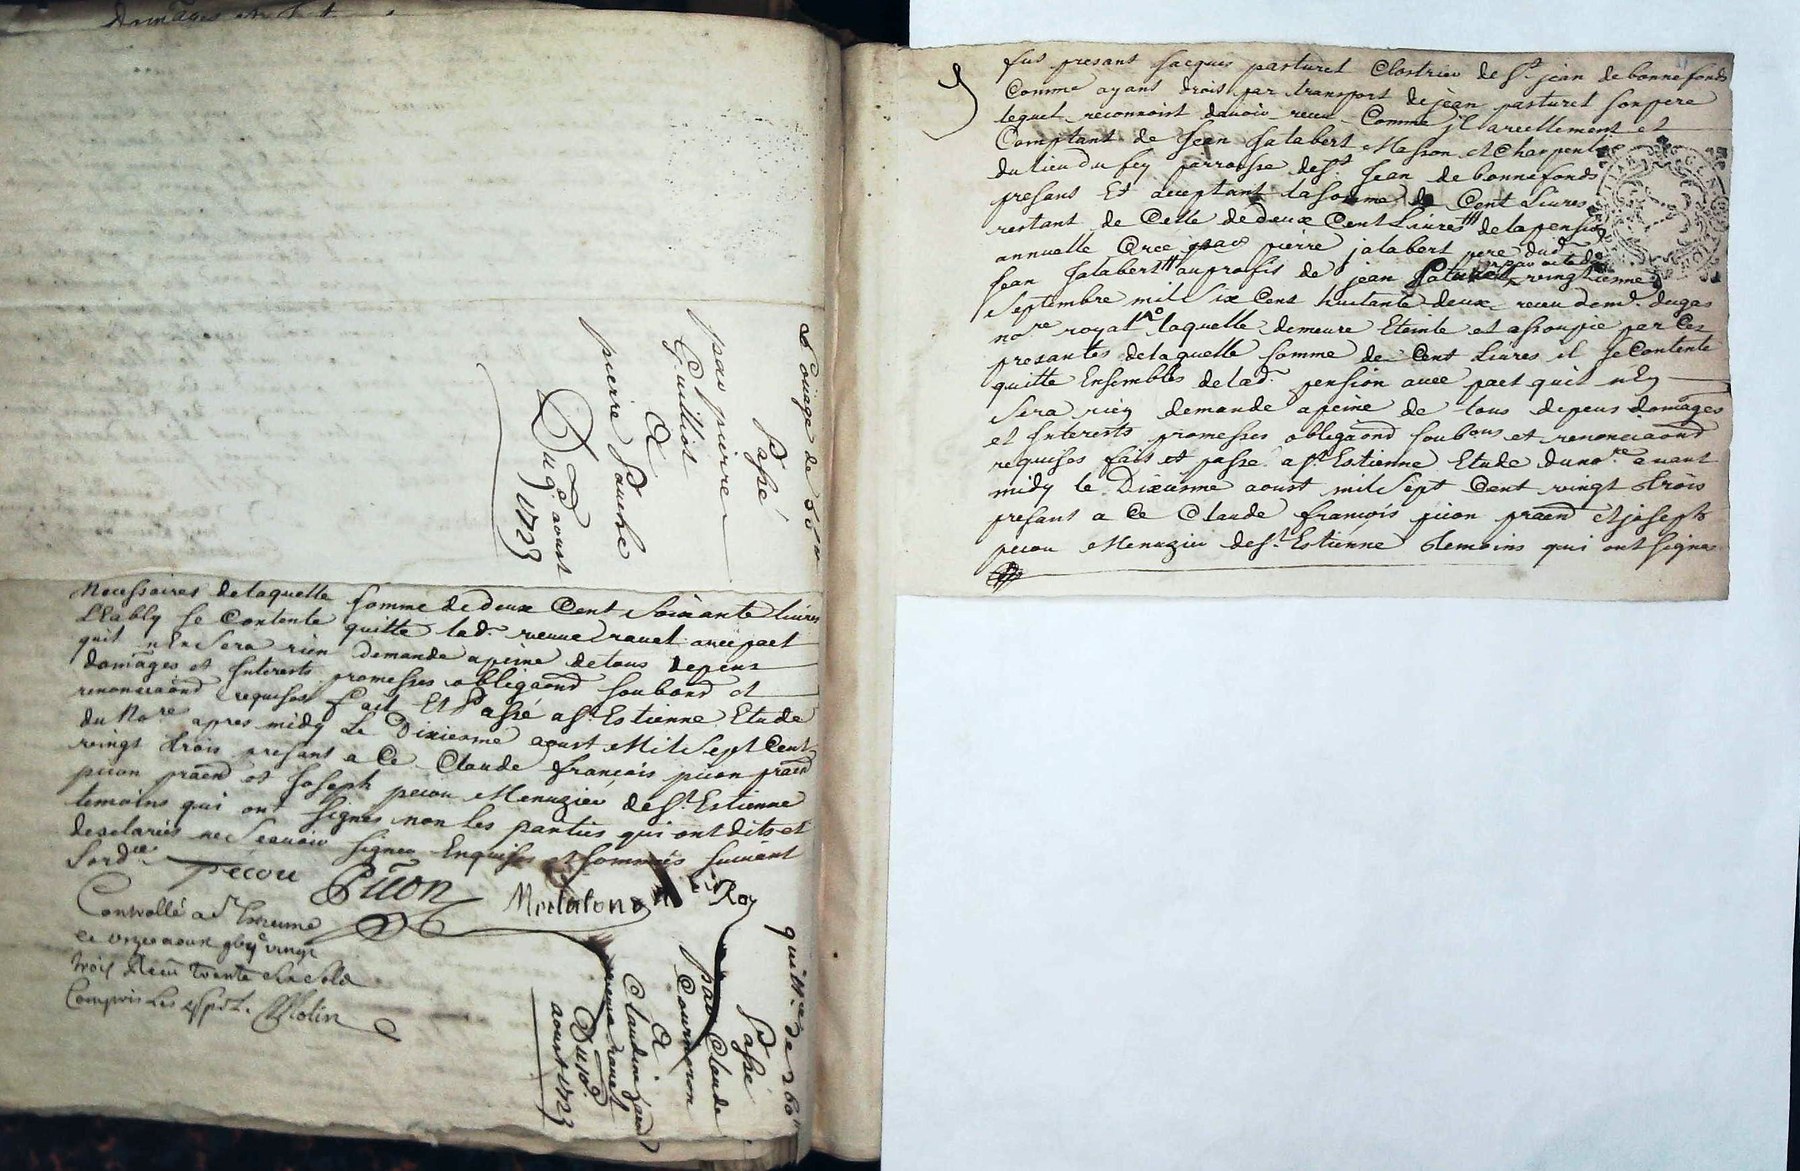 domages et
Louage de 60 lt
Passé
par pierre
Guilliot
A
pierre Fauche
Du 9e aoust
1723
Necessaires de laquelle somme de deux Cent soixante livres
L'Eably se Contente quitte lad. veuve ravel avec pact
quil n'En sera rien demande a peine de tous depens
domages et Interests promesses obligaond soubond et
renonciaond requises fait Et Passé a St Estienne Etude
du No.re apres midy Le Dixiesme aoust Mil Sept Cent
vingt trois presant a Ce Claude françois picon praend
picon praend et Joseph pecou Menuzier de St Estienne
temoins qui ont signes non les parties qui ont dits et
desclariés ne sçavoir signer Enquises et sommés suivant
l'ord.ce
pecou Picon
Le Roy
Controllé a St
ce onze aoust vingt
trois Receu trente six sols
Compris les Molin
quitt.ce de 260 lt
Passé
par Claude
A
Claudine
veuve ravel
Du 10e
aoust 1723
fut presant Jacques pasturel Clostrier de St jean de bonnefonds
Comme ayant drois par transport de jean pasturel son pere
lequel reconnoist davoir receu Comme il a reellement et
Comptant de Jean Jalabert Masson et Charpentier
du lieu du fey parroisse de St Jean de bonnefonds
presant Et aceptant la somme de Cent Livres
restant de Celle de deux Cent Livres de la pension
annuelle Cree par pierre jalabert pere dud.
Jean Jalabert au profit de jean pasturel par acte du vingtienne
Septembre mil Six Cent huitante deux receu dem.e dugas
no.re royal laquelle demeure Eteinte et assoupie par Ces
presantes de laquelle somme de Cent Livres il se Contente
quitte Ensembles de lad. pension avec pact quil n'En
sera rien demande a peine de tous depens domages
et Interests promesses obligaond soubons et renonciaond
requises fait et passé a St Estienne Etude du no.re avant
midy le Dixiesme aoust mil Sept Cent vingt trois
presant a Ce Claude françois picon praend et joseph
pecou Menuzier de St Estienne temoins qui ont signe